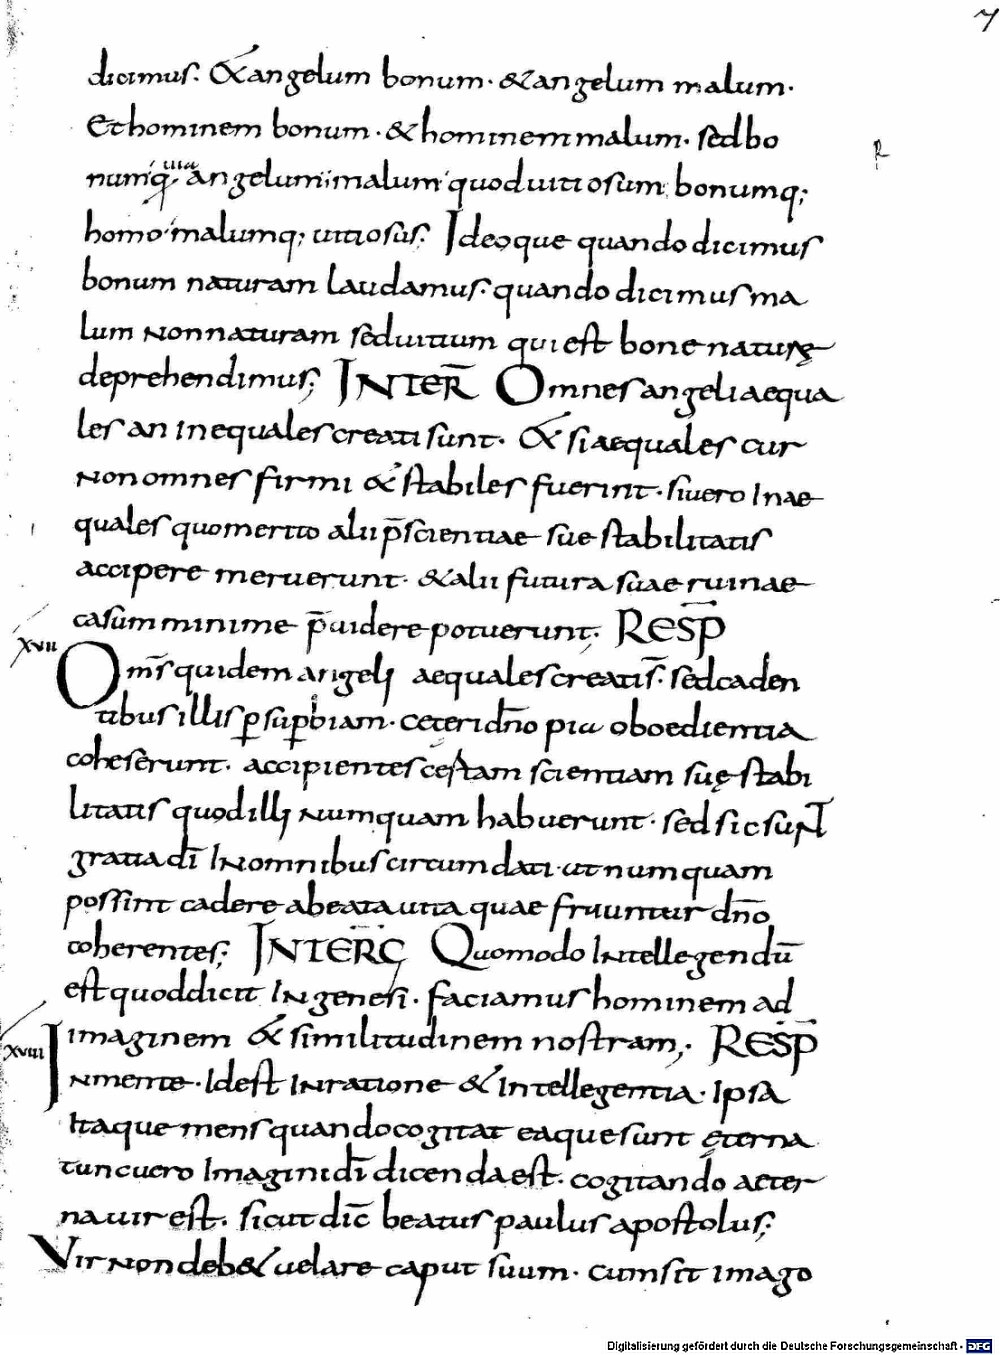 7
dicimus. &angelum bonum. &angelum malum.
Ethominem bonum. &hominem malum. sedbo
numq; angelum; malum quoduitiosum bonumq;
homo malumq; uitiosus. Ideoque quando dicimus
bonum naturam laudamus. quando dicimus ma
lum nonnaturam seduitium qui est bone naturę
deprehendimus; INTER̄ Omnes angeli aequa
les an inequales creati sunt. & siaequales cur
non omnes firmi & stabiles fuerint. siuero inae
quales quomerito alii p̄scientiae suae stabilitatis
accipere meruerunt. &alii futura suae ruinae
casum minime p̄uidere potuerunt. RESP̄
XVII
Om̄s quidem angeli aequales creatis̄. sedcaden
tibus illis ꝑ suꝑbiam. ceteri dn̄o pia oboedientia
coheserunt. accipientes certam scientiam suę stabi
litatis quod illi numquam habuerunt. sed sic sunt
gratia dī in omnibus circumdati. ut numquam
possint cadere abeata uita quae fruuntur dn̄o
coherentes; INTERC̄ Quomodo intellegendū
est quoddicit in genesi. faciamus hominem ad
imaginem & similitudinem nostram; RESP̄
XVIII
Inmente. Idest inratione & intellegentia. Ipsa
itaque mens quandocogitat eaque sunt ęterna
tuncuero imaginidī dicenda est. cogitando aeter
na uir est. sicut dic̄ beatus paulus apostolus;
Vir non deb& uelare caput suum. cumsit imago
Digitalisierung gefördert durch die Deutsche Forschungsgemeinschaft - DFG